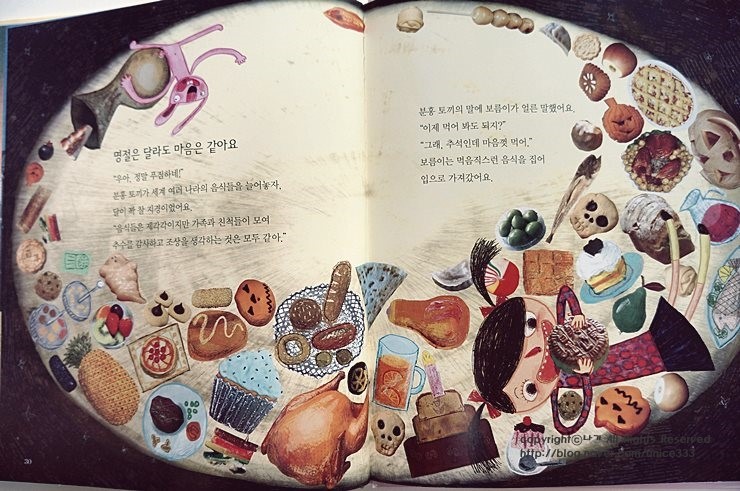 명절은 달라도 마음은 같아요
"우아, 정말 푸짐하네!"
분홍 토끼가 세계 여러 나라의 음식들을 늘어놓자,
달이 꽉 찰 지경이었어요.
"음식들은 제각각이지만 가족과 친척들이 모여
추수를 감사하고 조상을 생각하는 것은 모두 같아."
30
분홍 토끼의 말에 보름이가 얼른 말했어요.
"이제 먹어 봐도 되지?"
"그래, 추석인데 마음껏 먹어."
보름이는 먹음직스런 음식을 집어
입으로 가져갔어요.
copyrightⓒ나기 All Rights Reserved